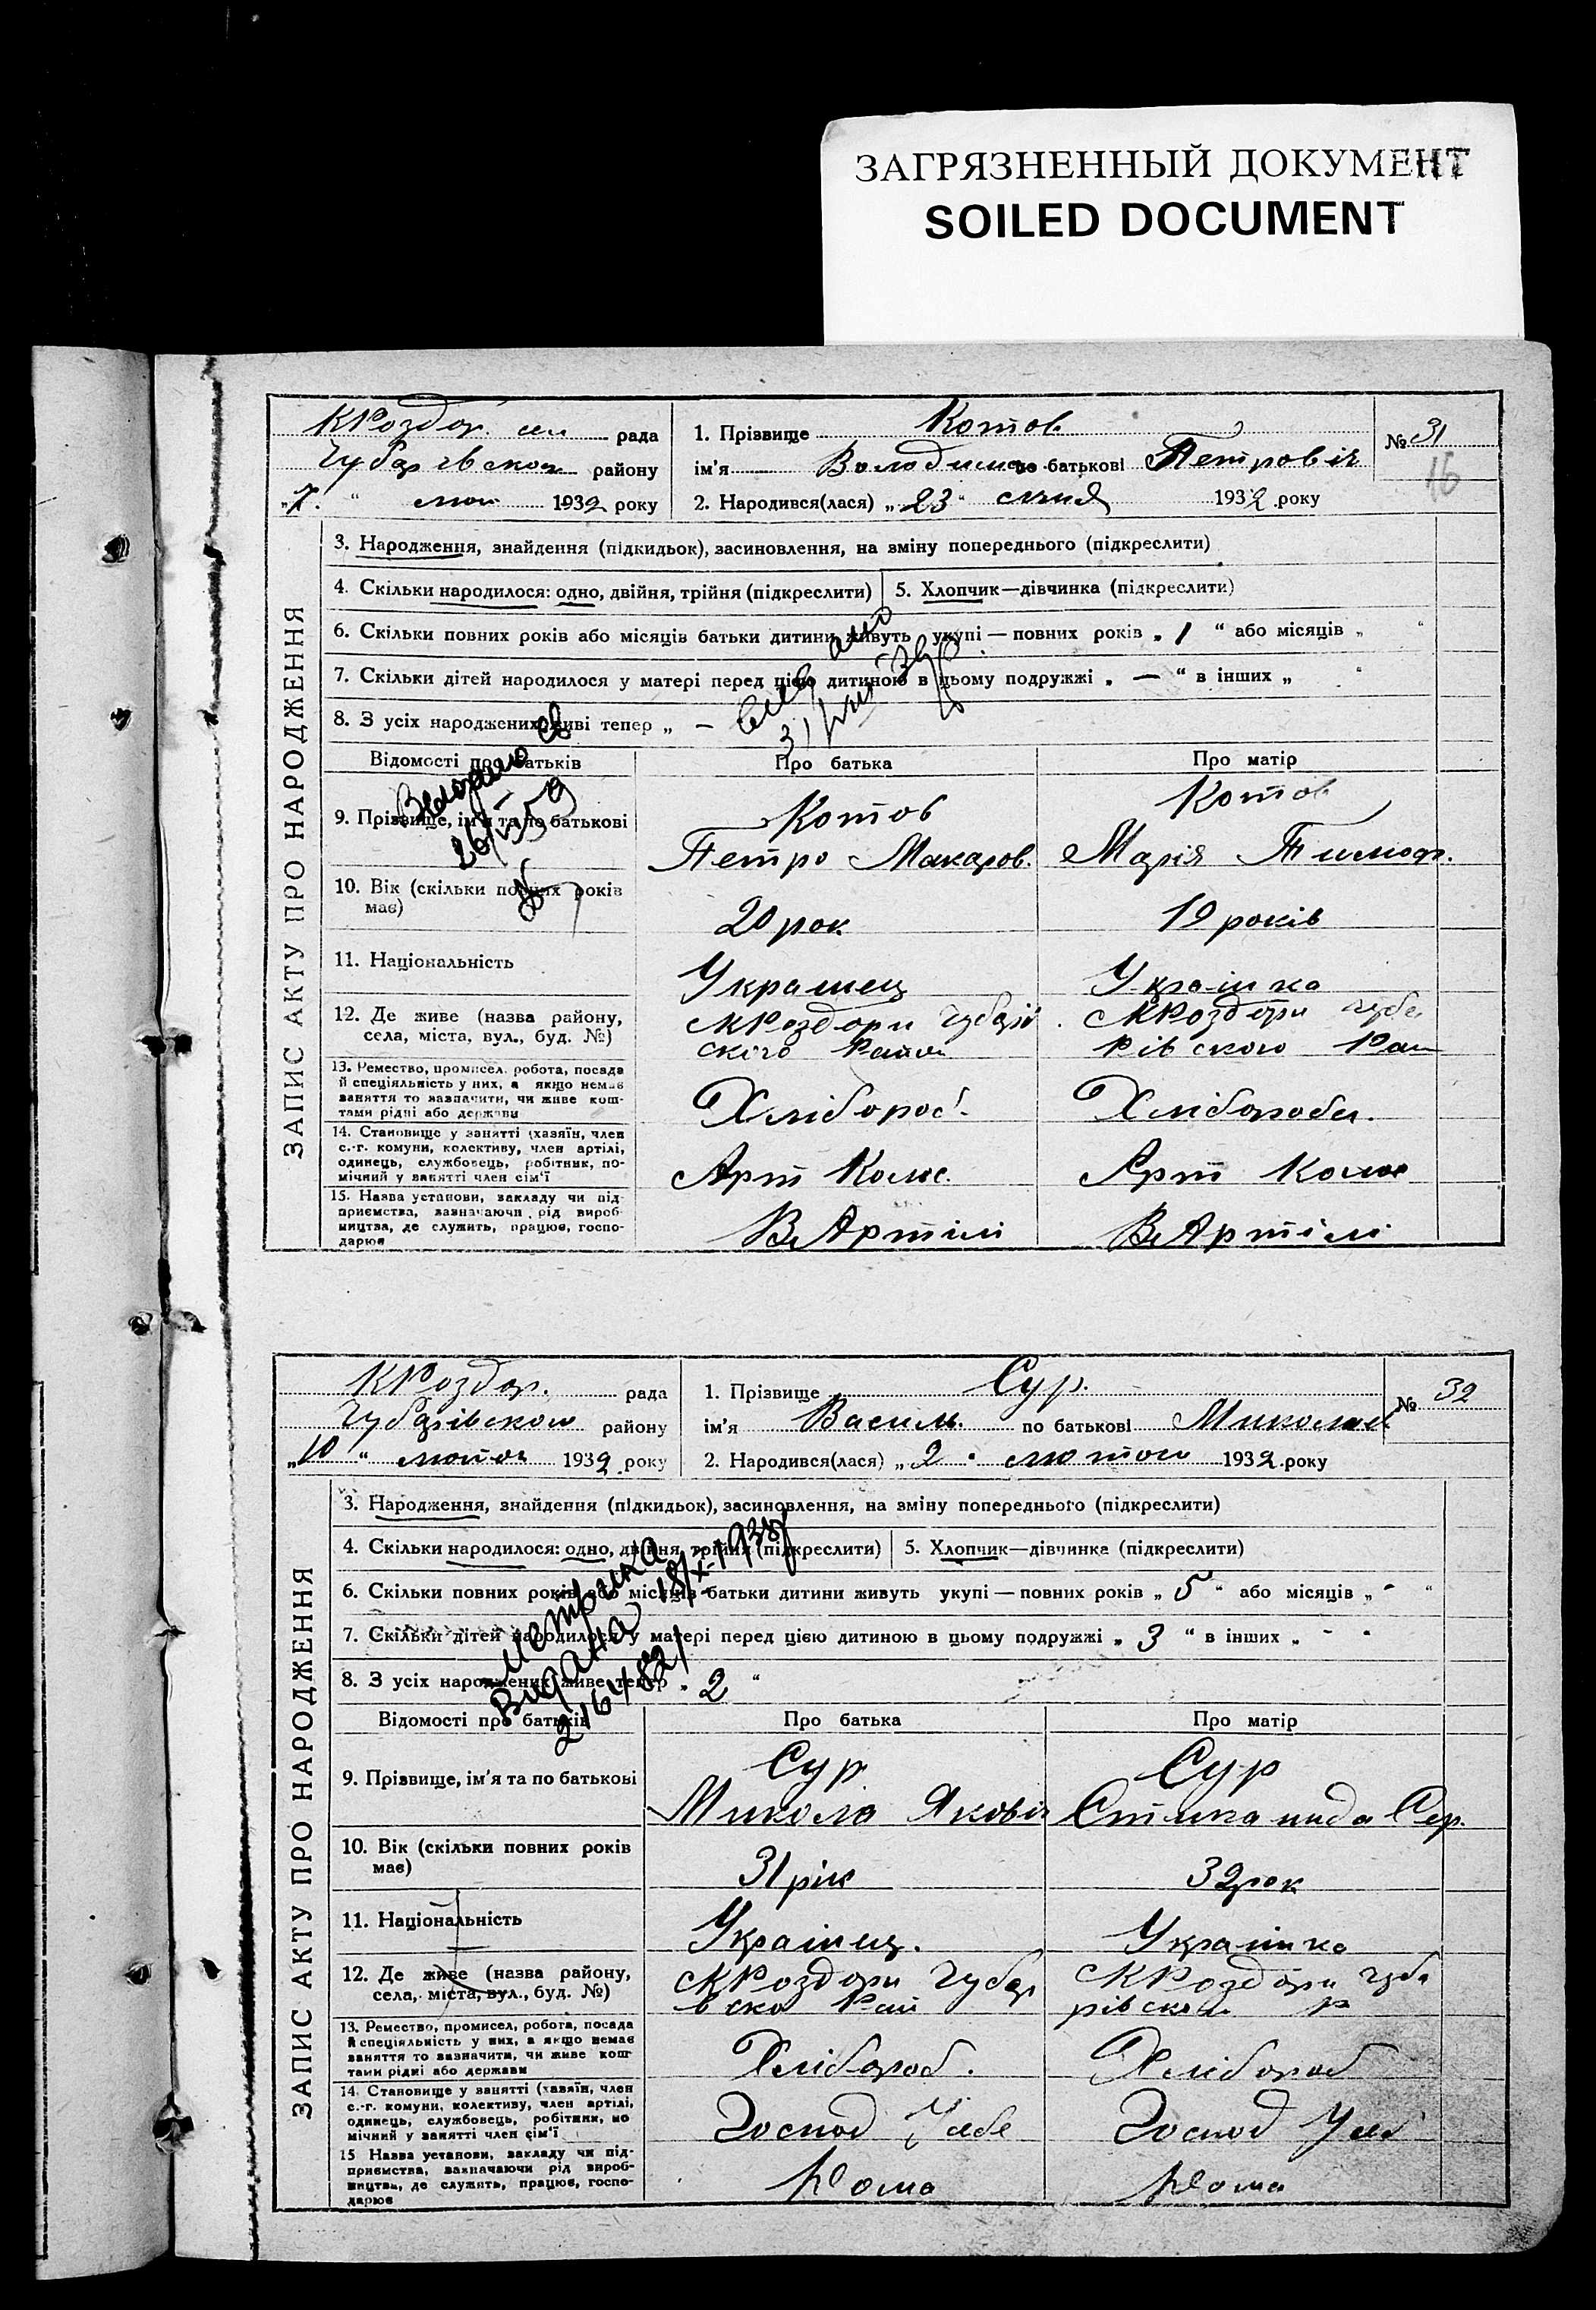 ЗАГРЯЗНЕННЫЙ ДОКУМЕНТ
SOILED DOCUMENT
КРоздор. рада
району
„7.“ 1932 року
1. Прізвище Котов
ім'я Володимир по батькові Петровіч
2. Народився(лася) „23“ січня 1932 року
№ 31
16
ЗАПИС АКТУ ПРО НАРОДЖЕННЯ
3. Народження, знайдення (підкидьок), засиновлення, на зміну попереднього (підкреслити)
4. Скільки народилося: одно, двійня, трійня (підкреслити)
5. Хлопчик—дівчинка (підкреслити)
6. Скільки повних років або місяців батьки дитини живуть укупі — повних років „1“ або місяців „ “
7. Скільки дітей народилося у матері перед цією дитиною в цьому подружжі „—“ в інших „ “
8. З усіх народжених живі тепер „ —
Відомості про батьків
Про батька
Про матір
9. Прізвище, ім'я та по батькові
Котов
Петро Макаров.
Котов
Марія Тимоф.
10. Вік (скільки повних років має)
20 рок
19 років
11. Національність
Украінец
Украінка
12. Де живе (назва району,
села, міста, вул., буд. №)
КРоздори Чубарів
ского Район
КРоздори Чуба
рівского Рай
13. Ремество, промисел, робота, посада
й спеціяльність у них, а якщо немає
заняття то зазначити, чи живе кош-
тами рідні або держави
Хлібороб.
Хлібороби.
14. Становище у занятті (хазяїн, член
с.-г. комуни, колективу, член артілі,
одинець, службовець, робітник, по-
мічний у занятті член сім'ї
Арт
Арт
15. Назва установи, закладу чи під-
приємства, зазначаючи рід вироб-
ництва, де служить, працює, госпо-
дарює
В Артілі
В Артілі
КРоздор. рада
Чубарівского району
„10“ лютого 1932 року
1. Прізвище Сур.
ім'я Василь. по батькові Миколай
2. Народився(лася) „2“ лютого 1932 року
№ 32
ЗАПИС АКТУ ПРО НАРОДЖЕННЯ
3. Народження, знайдення (підкидьок), засиновлення, на зміну попереднього (підкреслити)
4. Скільки народилося: одно, двійня, трійня (підкреслити)
5. Хлопчик—дівчинка (підкреслити)
6. Скільки повних років або місяців батьки дитини живуть укупі — повних років „5“ або місяців „-“
7. Скільки дітей народилося у матері перед цією дитиною в цьому подружжі „3“ в інших „ - “
8. З усіх народжених живе тепер „2“
Метрика
Видана 18/X-1938
2164821
Відомості про батьків
Про батька
Про матір
9. Прізвище, ім'я та по батькові
Сур
Микола Яковіч
Сур
Сер.
10. Вік (скільки повних років
має)
31 рік
32 рок
11. Національність
Украінец.
Украінка
12. Де живе (назва району,
села, міста, вул., буд. №)
КРоздори Чубар
вско Рай
КРоздори Чуба
рівской р
13. Ремество, промисел, робота, посада
й спеціяльність у них, а якщо немає
заняття то зазначити, чи живе кош-
тами рідні або держави
Хлібороб.
Хлібороб
14. Становище у занятті (хазяїн, член
с.-г. комуни, колективу, член артілі,
одинець, службовець, робітник, по-
мічний у занятті член сім'ї
Господ У себе
Господ У себ
15 Назва установи, закладу чи під-
приємства, зазначаючи рід вироб-
ництва, де служить, працює, госпо-
дарює
Дома
Дома